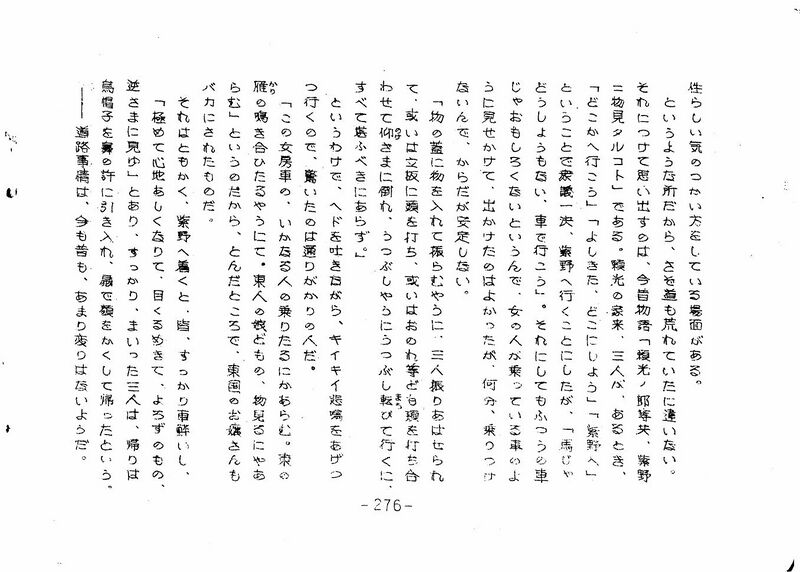 性らしい気のつかい方をしている場面がある。
というような所だから、さぞ道も荒れていたに違いない。
それにつけて思い出すのは、今昔物語「頼光ノ郎等共、紫野
ニ物見タルコト」である。頼光の家来、三人が、あるとき、
「どこかへ行こう」「よしきた、どこにしよう」「紫野へ」
ということで衆議一決、紫野へ行くことにしたが、「馬じゃ
どうしょうもない、車で行こう」。それにしてもふつうの車
じゃおもしろくないというんで、女の人が乗っている車のよ
うに見せかけて、出かけたのはよかったが、何分、乗りつけ
ないんで、からだが安定しない。
「物の蓋に物を入れて振らむやうに、三人振りあはせられ
て、或いは立板に頭を打ち、或いはおのれ等ども頭を打ち合
わせて仰さまに倒れ、うつぶしやうにうつぶし転びて行くに、
すべて堪ふべきにあらず。」
というわけで、ヘドを吐きながら、キイキイ悲鳴をあげつ
つ行くので、驚いたのは通りがかりの人だ。
「この女房車の、いかなる人の乗りたるにかあらむ。東の
雁の鳴き合ひたるやうにて。東人の娘どもの、物見るにやあ
らむ」というのだから、とんだところで、東国のお嬢さんも
バカにされたものだ。
それはともかく、紫野へ着くと、皆、すっかり車酔いし、
「極めて心地あしくなりて、目くるめきて、よろずのもの、
逆さまに見ゆ」とあり、すっかり、まいった三人は、帰りは
烏帽子を鼻の許に引き入れ、扇で顔をかくして帰ったという。
――道路事情は、今も昔も、あまり変りはないようだ。
-276-